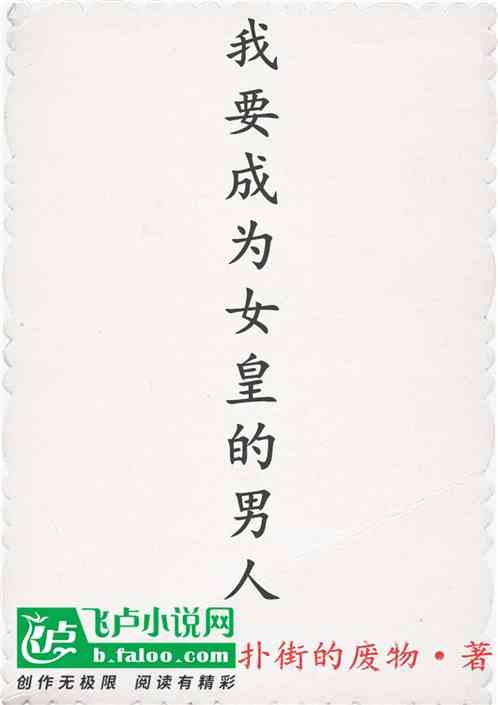 我要成为女皇的男人
飞卢小说网
b.faloo.com
创作无极限 阅读有精彩
扑街的废物·著